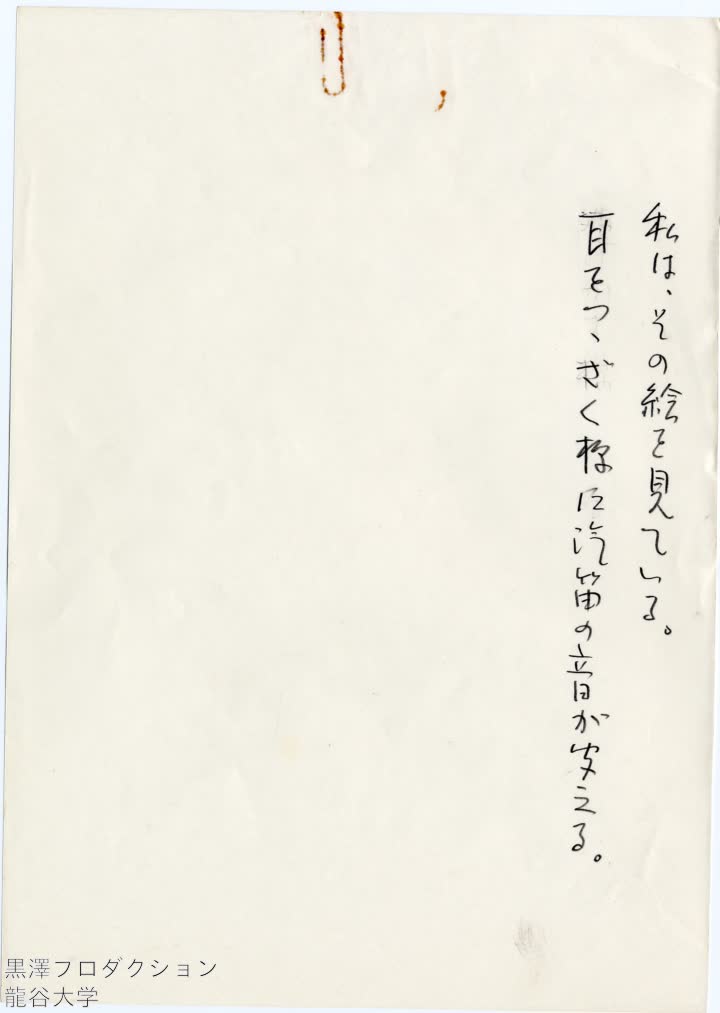 私は、その絵を見ている。
耳をつゝざく様に汽笛の音が聞える。
黒澤プロダクション
龍谷大学